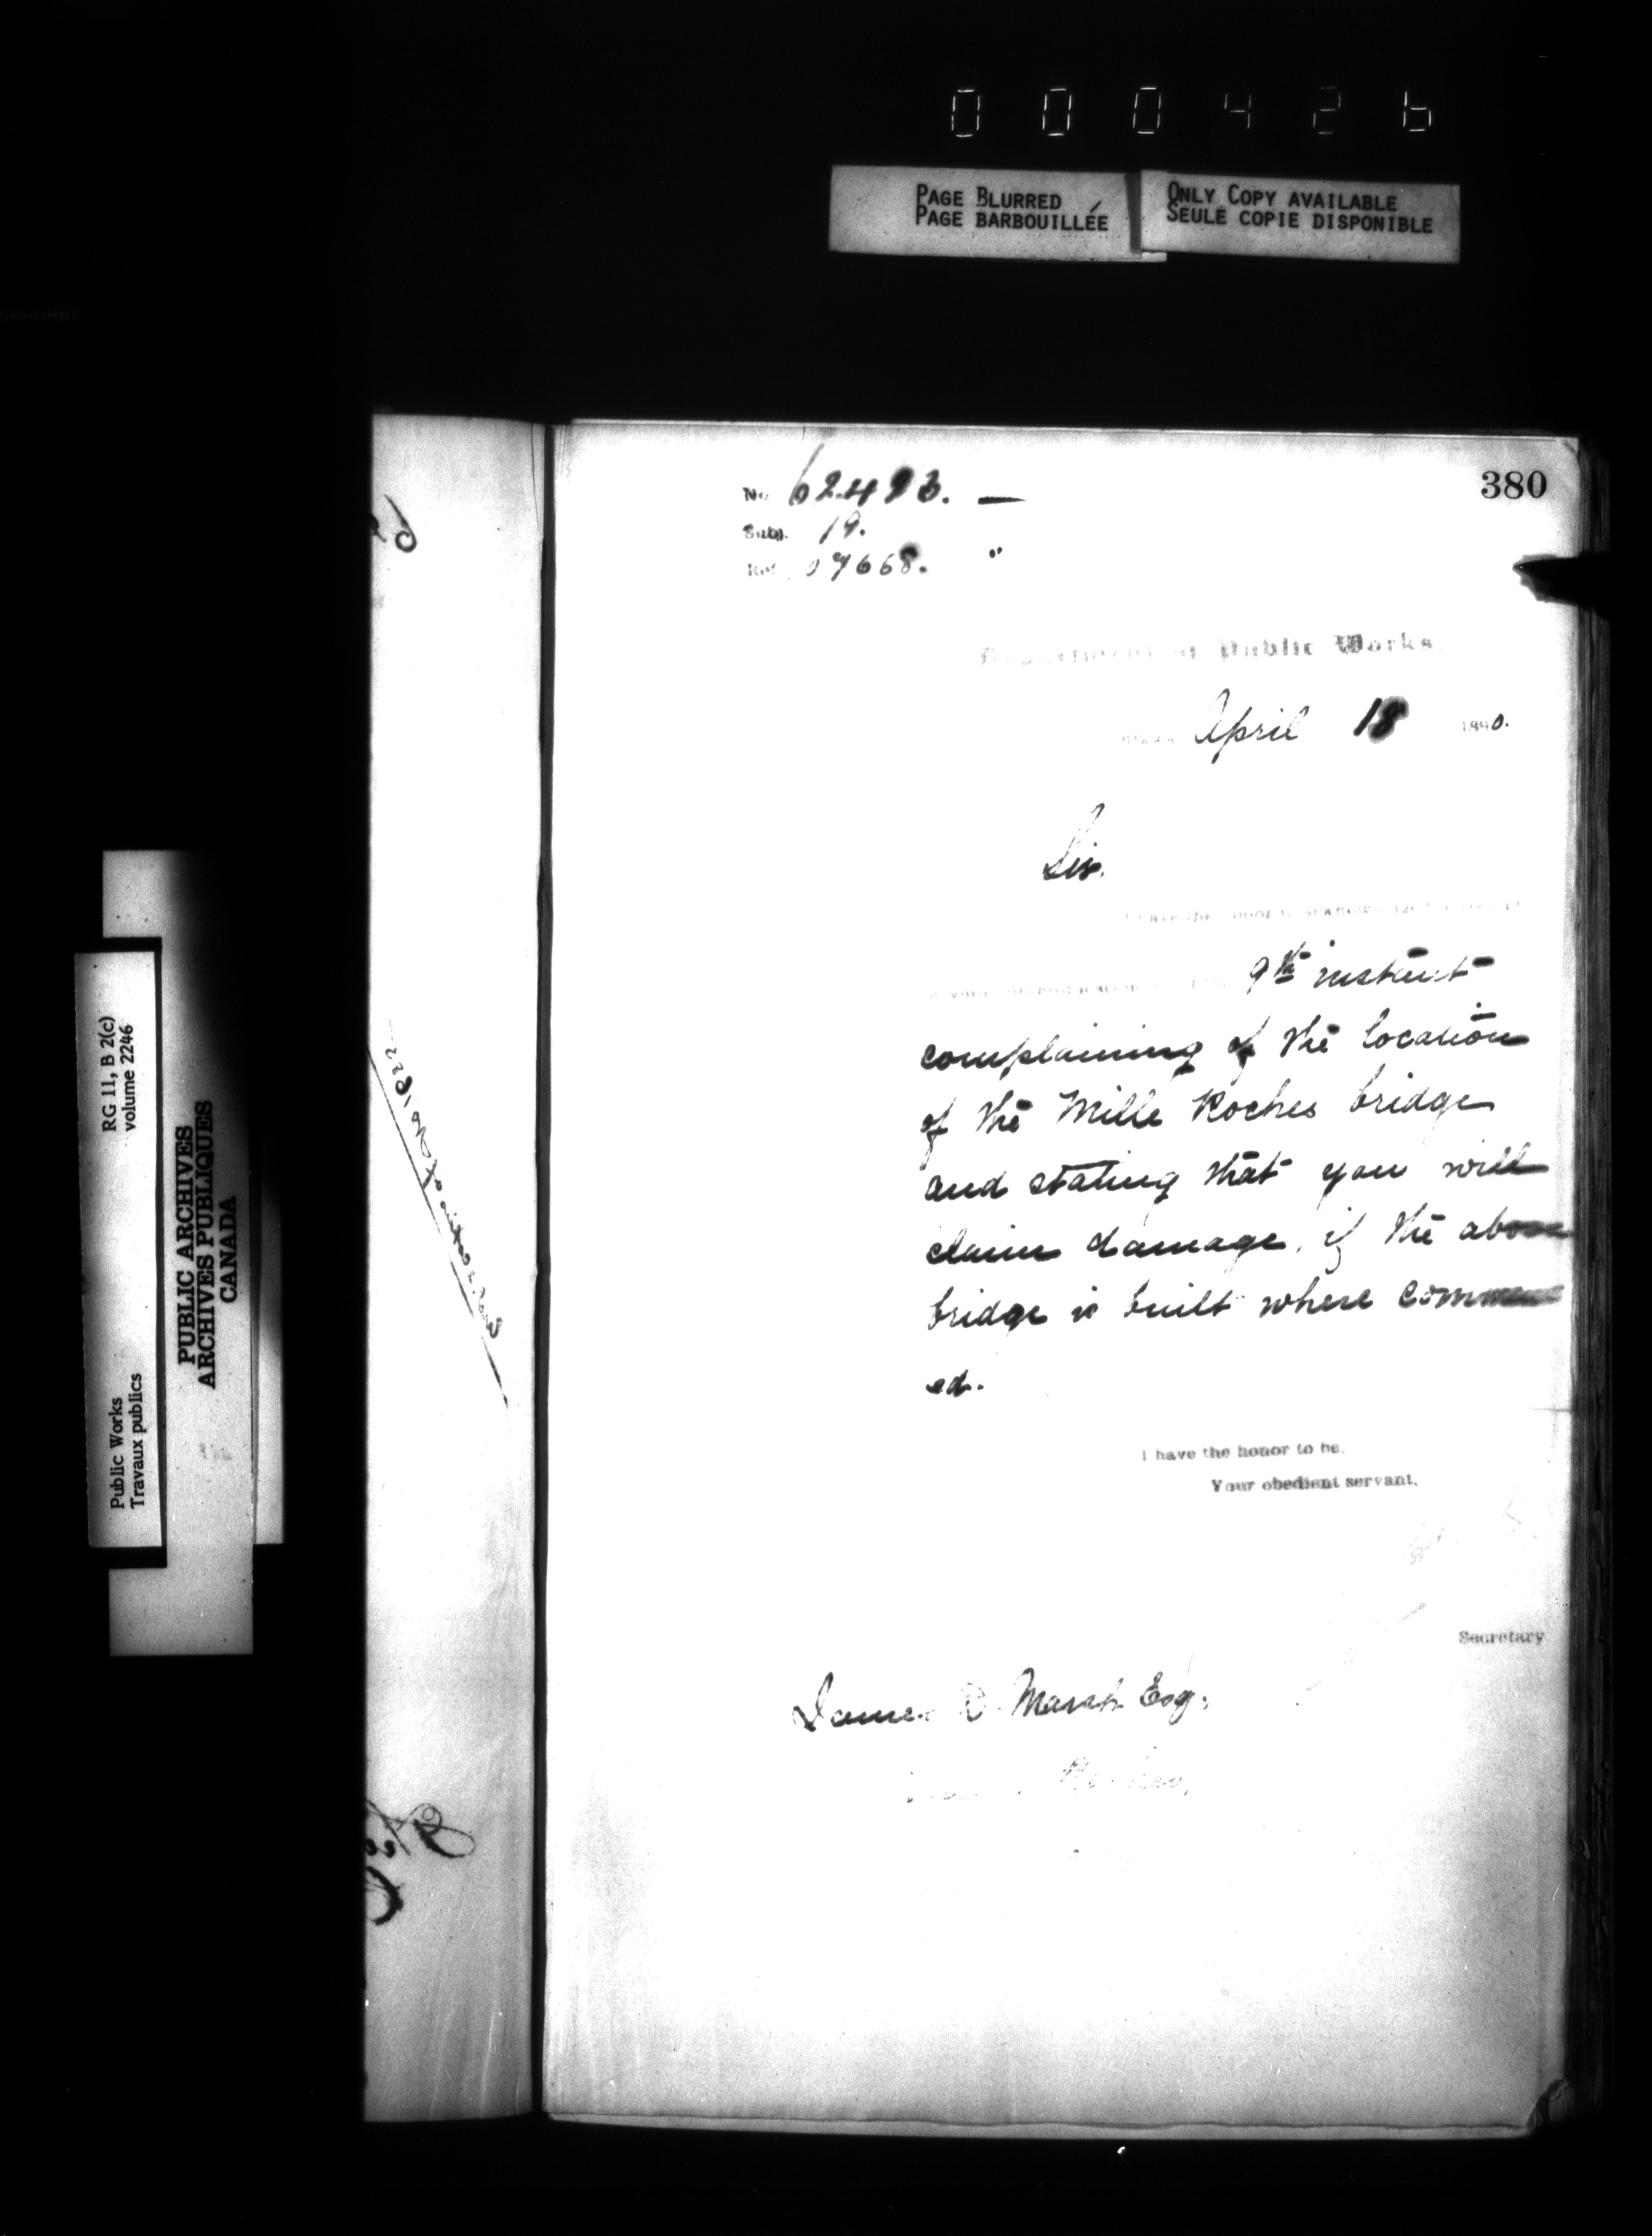 000426
PAGE BLURRED
PAGE BARBOUILLÉE
ONLY COPY AVAILABLE
SEULE COPIE DISPONIBLE
380
No 62493.
Subj. 19.
Ref. 7668.
Department of Public Works.
April 18 1890.
Sir.
I have the honor to acknowledge
9th instant
complaining of the location
of the Mille Roches bridge
and stating that you will
claim damage, if the above
bridge is built where commenc
ed.
I have the honor to be,
Your obedient servant,
Secretary
James Marsh Esq.
RG 11, B 2(c)
volume 2246
Public Works
Travaux publics
PUBLIC ARCHIVES
ARCHIVES PUBLIQUES
CANADA